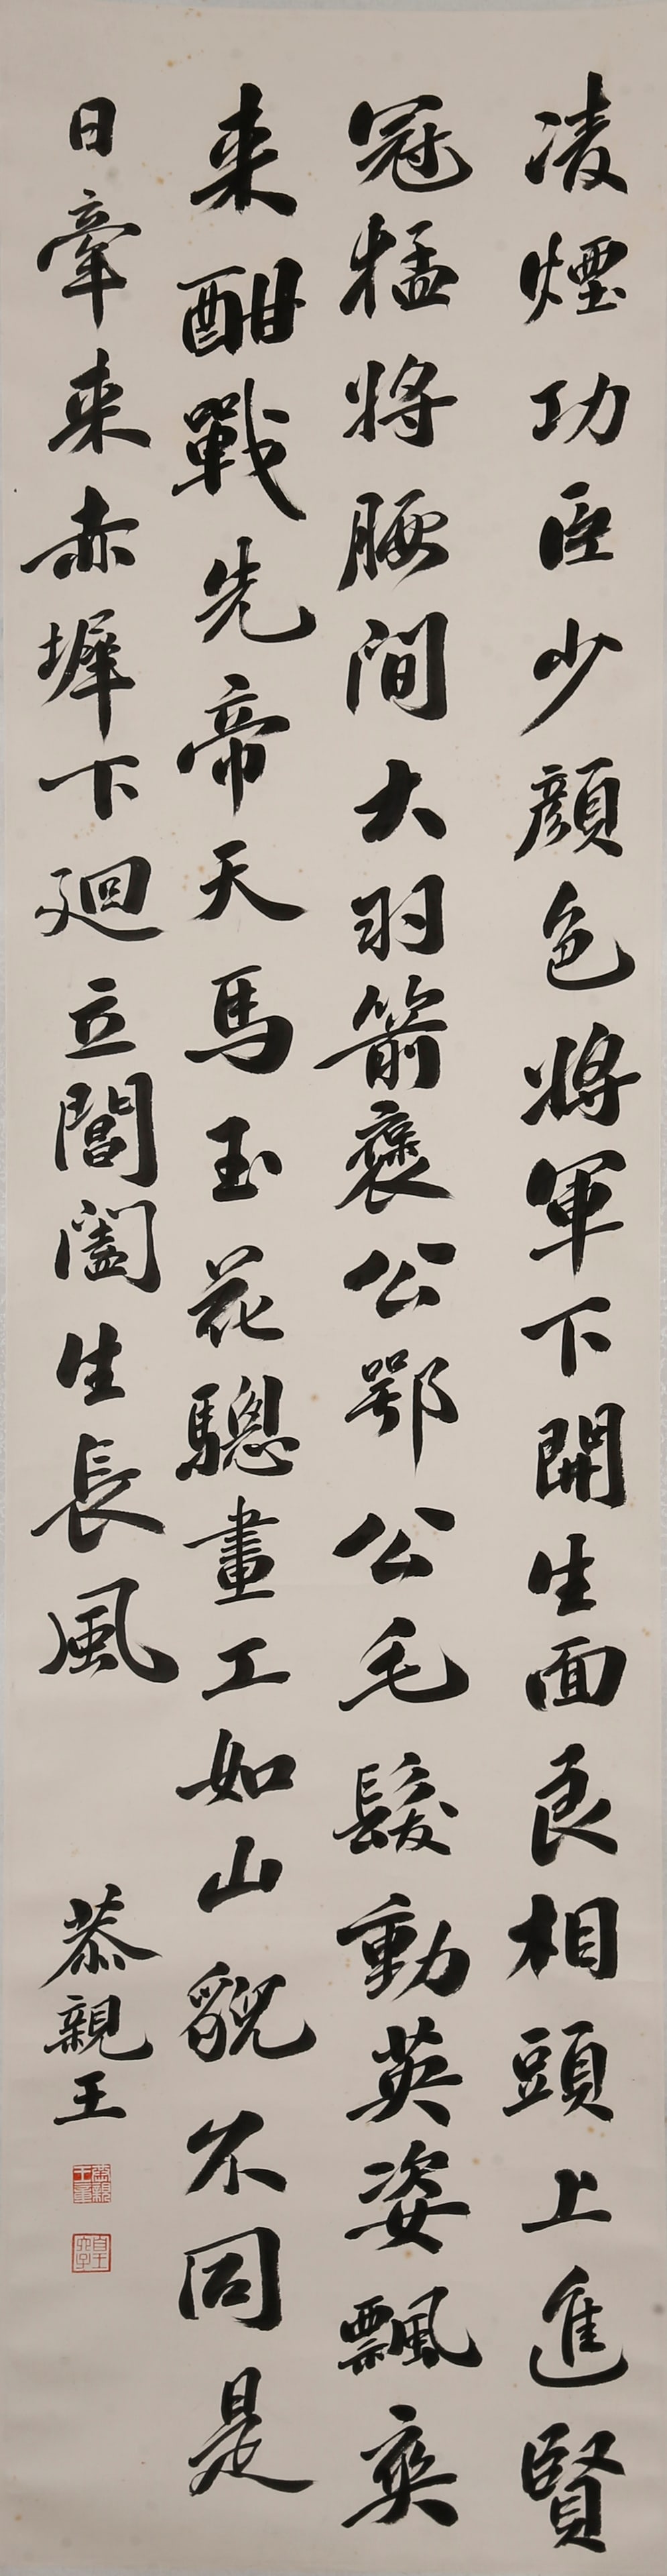 凌煙功臣少顏色將軍下開生面良相頭上進賢
冠猛將腰間大羽箭褒公鄂公毛髮動英姿飄爽
来酣戰先帝天馬玉花驄畫工如山貌不同是
日牽来赤墀下迴立閶闔生長風
恭親王